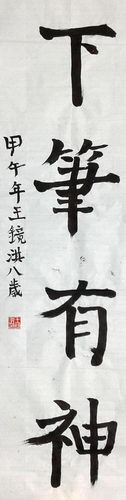 下筆有神
甲午年王鏡淇八歲